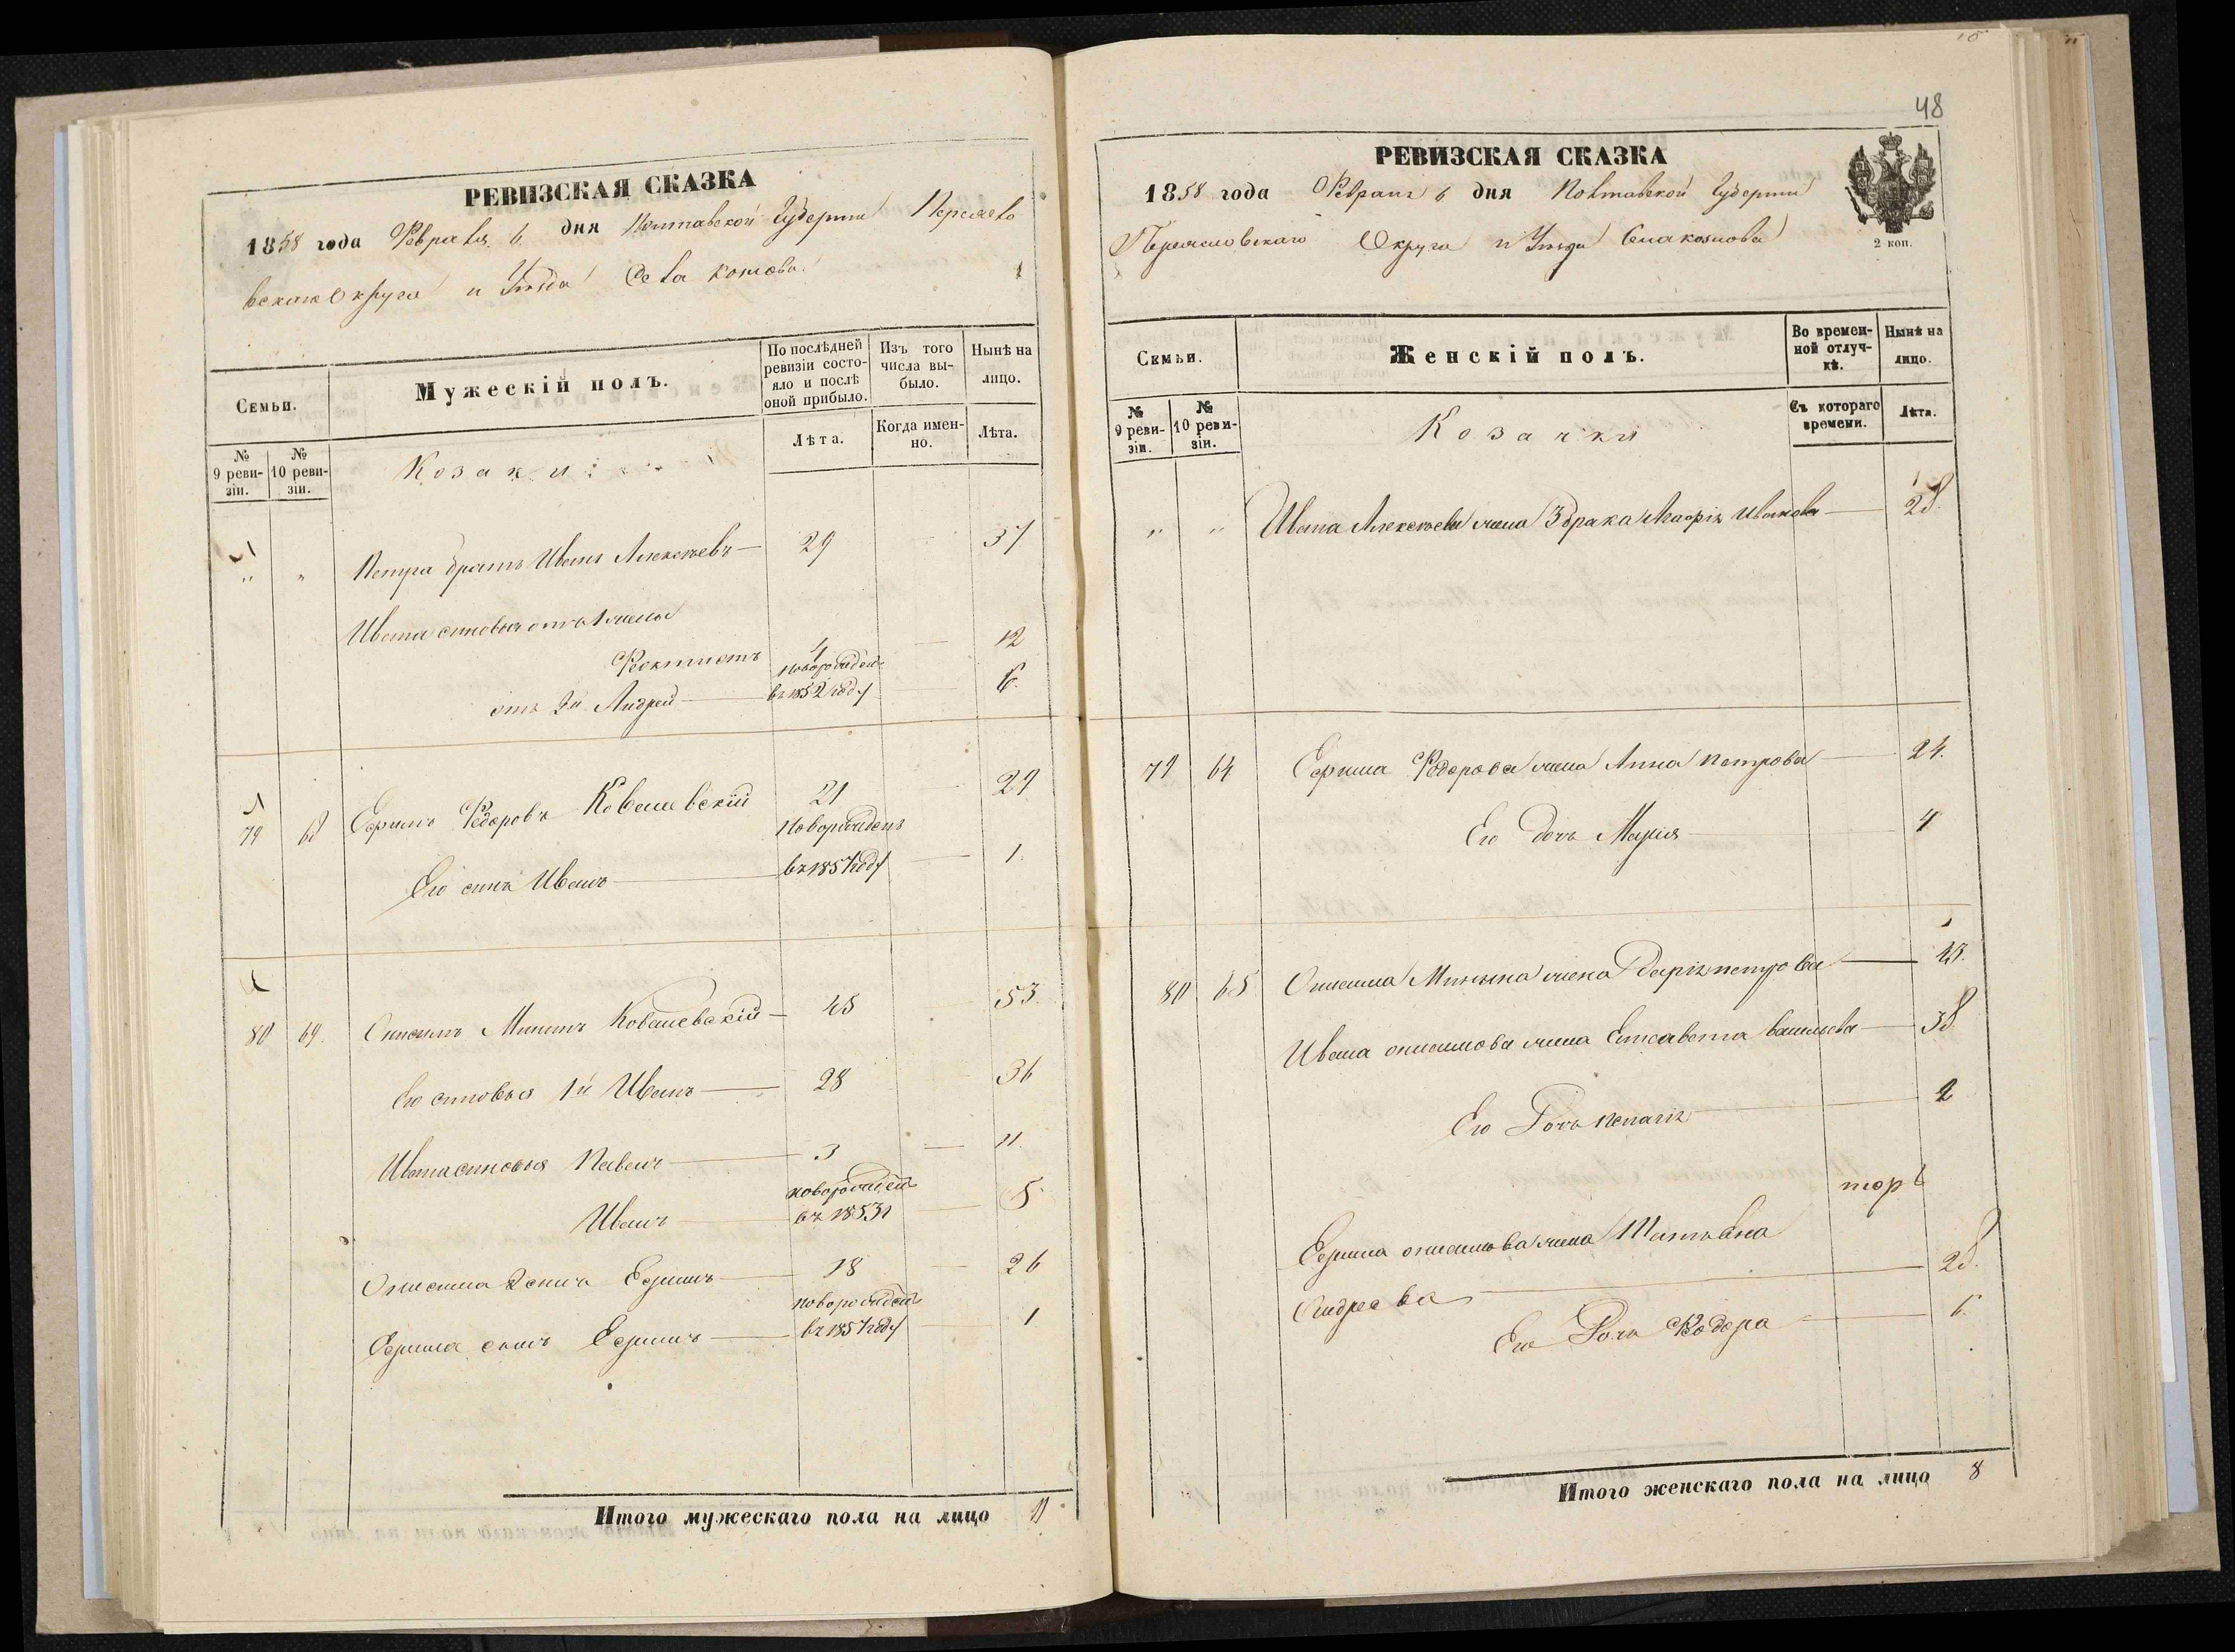 РЕВИЗСКАЯ СКАЗКА
1858 года Февраля 6 дня Полтавской Губерніи Переясло
вскаго Округа и Уѣзда Села
Семьи.
Мужескій полъ.
По послѣдней ревизіи состояло и послѣ оной прибыло.
Изъ того числа выбыло.
Нынѣ на лицо.
№ 9 ревизіи.
№ 10 ревизіи.
Козаки
Лѣта.
Когда именно.
Лѣта.
" " Петра братъ Иванъ Алексѣевъ 29 37
Ивана синовья отъ 1 жены
Феоктистъ 4 12
новорожден
отъ 2й Андрей въ 1852 году 6.
79 Ефимъ Федоровъ 21 29
Новорожденъ
Его синъ Иванъ въ 1857 году 1.
80 69. Онисимъ Мининъ Ковалевскій 45 53.
Его синовья 1й Иванъ 28 36
Ивана синовья Павелъ 3 11.
новорожден
Иванъ въ 1853 5
Онисима 2 синъ Ефимъ 18 26
новорожден
Ефима синъ Ефимъ въ 1857 году 1
Итого мужескаго пола на лицо 11
48
РЕВИЗСКАЯ СКАЗКА
1858 года Февраля 6 дня Полтавской Губерніи
Переясловскаго Округа и Уѣзда
2 коп.
Семьи.
Женскій полъ.
Во временной отлучкѣ.
Нынѣ на лицо.
№ 9 ревизіи.
№ 10 ревизіи.
Козачки
Съ котораго времени.
Лѣта.
" " Ивана Алексѣева жена брака Иванова 28.
79 64 Ефима Федорова жена Анна Петрова 24.
Его дочь Марія 4
80 65 Онисима Минина жена Петрова
Ивана Онисимова жена Елисавета Васильева 38
Его Дочь 2
Ефима Онисимова жена
Андреева 28.
Его Дочь Федора 6.
Итого женскаго пола на лицо 8